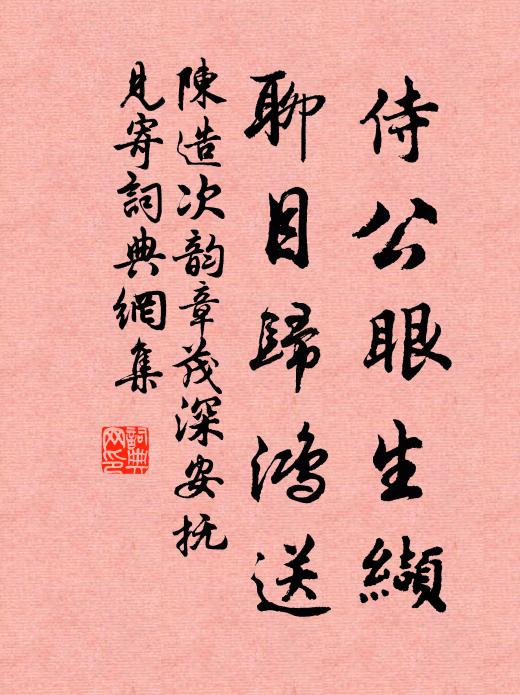 侍公眼生纈
聊目歸鴻送
陳造次韵章茂深安抚
見寄詞典網集
詞典
网印